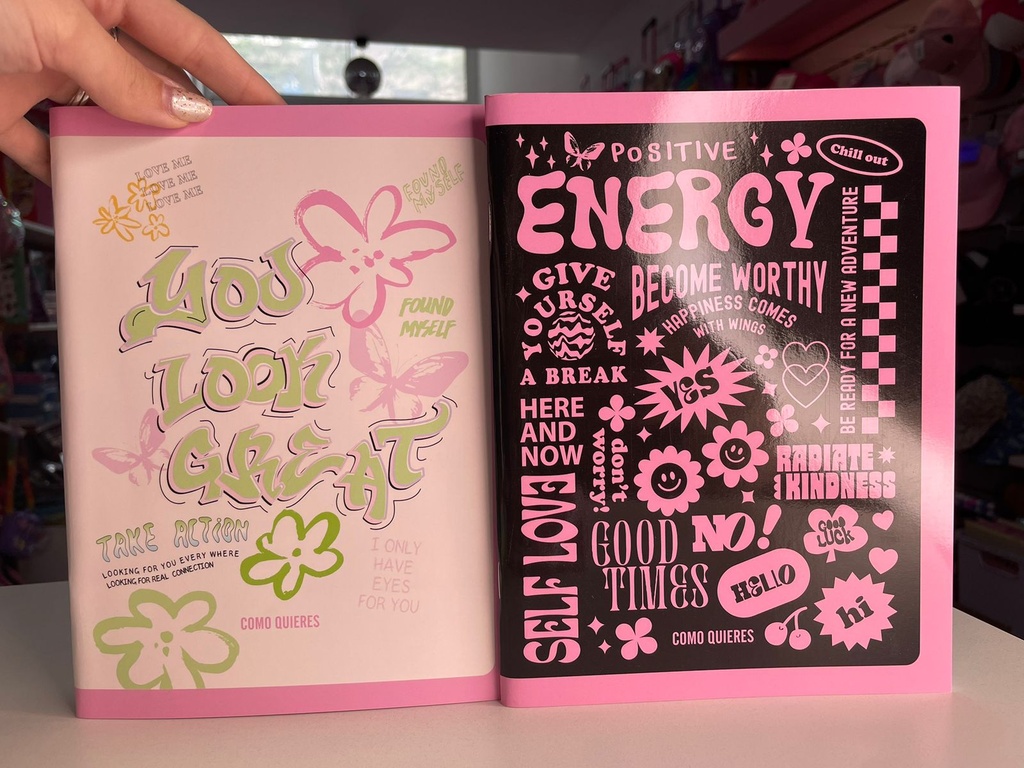 LOVE ME
LOVE ME
LOVE ME
FOUND
MYSELF
YOU
LOOK
GREAT
FOUND
MYSELF
TAKE ACTION
LOOKING FOR YOU EVERY WHERE
LOOKING FOR REAL CONNECTION
I ONLY
HAVE
EYES
FOR YOU
COMO QUIERES
POSITIVE
ENERGY
Chill out
BE READY FOR A NEW ADVENTURE
GIVE
YOURSELF
A BREAK
BECOME WORTHY
HAPPINESS COMES
WITH WINGS
YES
HERE
AND
NOW
don't
worry!
RADIATE
KINDNESS
SELF LOVE
GOOD
TIMES
NO!
GOOD
LUCK
HELLO
hi
COMO QUIERES